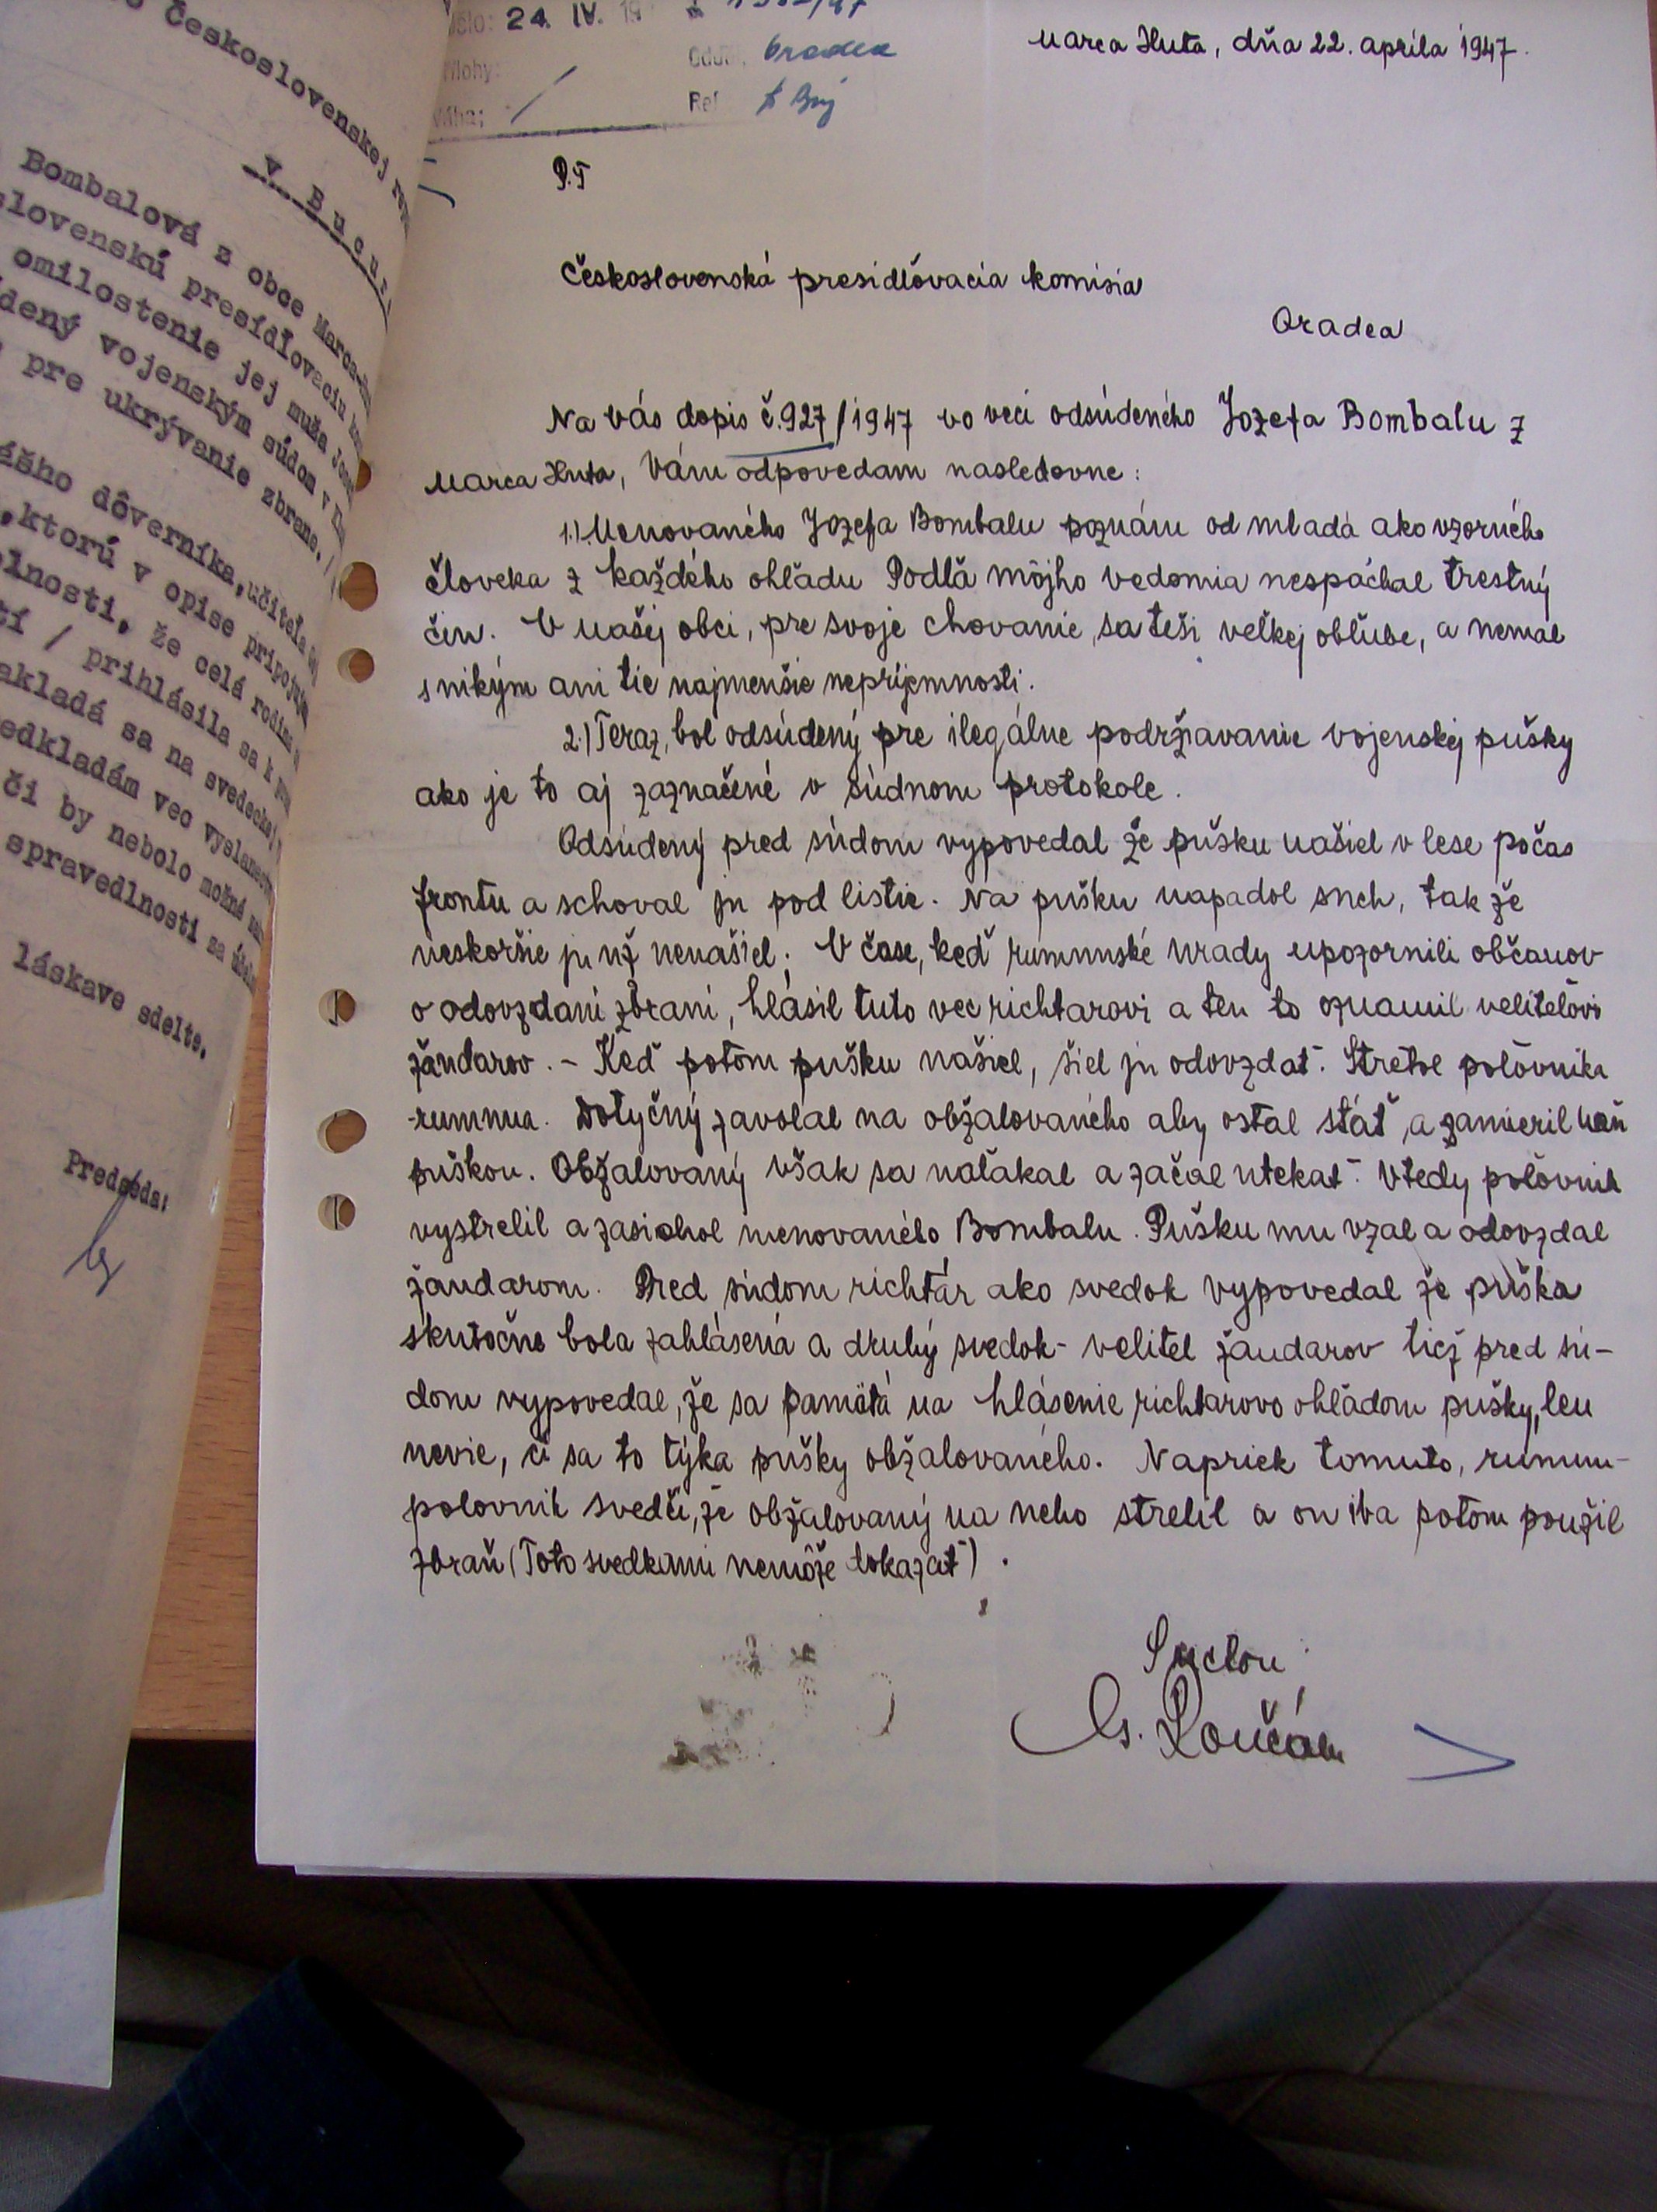 Československej
v Bucur
Bombalová z obce Marca-
slovenskú presídlovaciu
omilostenie jej muža
dený vojenským súdom v
pre ukrývanie zbrane.
ášho dôverníka, učiteľa
, ktorú v opise pripojujem
lnosti, že celá rodina
tí / prihlásila sa k
akladá sa na svedeckej
edkladám vec vyslanectvu
či by nebolo možné
spravedlnosti za
láskave sdelte.
Predseda:
číslo: 24. IV. 19
Prílohy:
Oradea
Ref
Marca Huta, dňa 22. apríla 1947.
P.T
Československá presidlovacia komisia
Oradea
Na Vás dopis č. 927/1947 vo veci odsúdeného Jozefa Bombalu z
Marca Huta, Vám odpovedam nasledovne:
1.) Menovaného Jozefa Bombalu poznám od mladá ako vzorného
človeka z každého ohľadu Podľa môjho vedomia nespáchal trestný
čin. V našej obci, pre svoje chovanie, sa teši veľkej obľube, a nemal
s nikým ani tie najmenšie nepríjemnosti.
2.) Teraz, bol odsúdený pre ilegálne podržiavanie vojenskej pušky
ako je to aj zaznačené v súdnom protokole.
Odsúdený pred súdom vypovedal že pušku našiel v lese počas
frontu a schoval ju pod listie. Na pušku napadol sneh, tak že
neskoršie ju už nenašiel. V čase, keď rumunské úrady upozornili občanov
o odovzdaní zbraní, hlásil túto vec richtarovi a ten to oznamil veliteľovi
žandarov. - Keď potom pušku našiel, šiel ju odovzdať. Stretol poľovníka
rumuna. Dotyčný zavolal na obžalovaného aby ostal stáť, a zamieril naň
puškou. Obžalovaný však sa naľakal a začal utekať. Vtedy poľovník
vystrelil a zasiahol menovaného Bombalu. Pušku mu vzal a odovzdal
žandarom. Pred súdom richtár ako svedok vypovedal že puška
skutočne bola zahlásená a druhý svedok - velitel žandarov tiež pred sú-
dom vypovedal, že sa pamätá na hlásenie richtarovo ohľadom pušky, len
nevie, či sa to týka pušky obžalovaného. Napriek tomuto, rumun-
polovnik svedčí, že obžalovaný na neho strelil a on iba potom použil
zbraň (Toto svedkami nemôže dokazať).
S úctou
Lončár